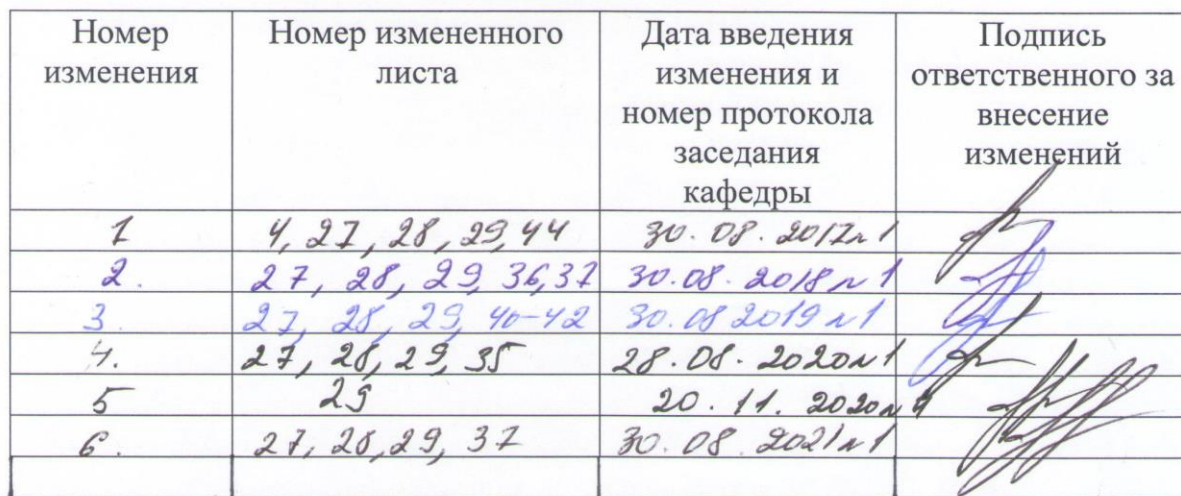 Номер изменения Номер измененного листа Дата введения изменения и номер протокола заседания кафедры Подпись ответственного за внесение изменений
1 4, 27, 28, 29, 44 30.08.2017 №1
2. 27, 28, 29, 36, 37 30.08.2018 №1
3. 27, 28, 29, 40-42 30.08 2019 №1
4. 27, 28, 29, 35 28.08.2020 №1
5 29 20.11.2020 №4
6. 27, 28, 29, 37 30.08.2021 №1